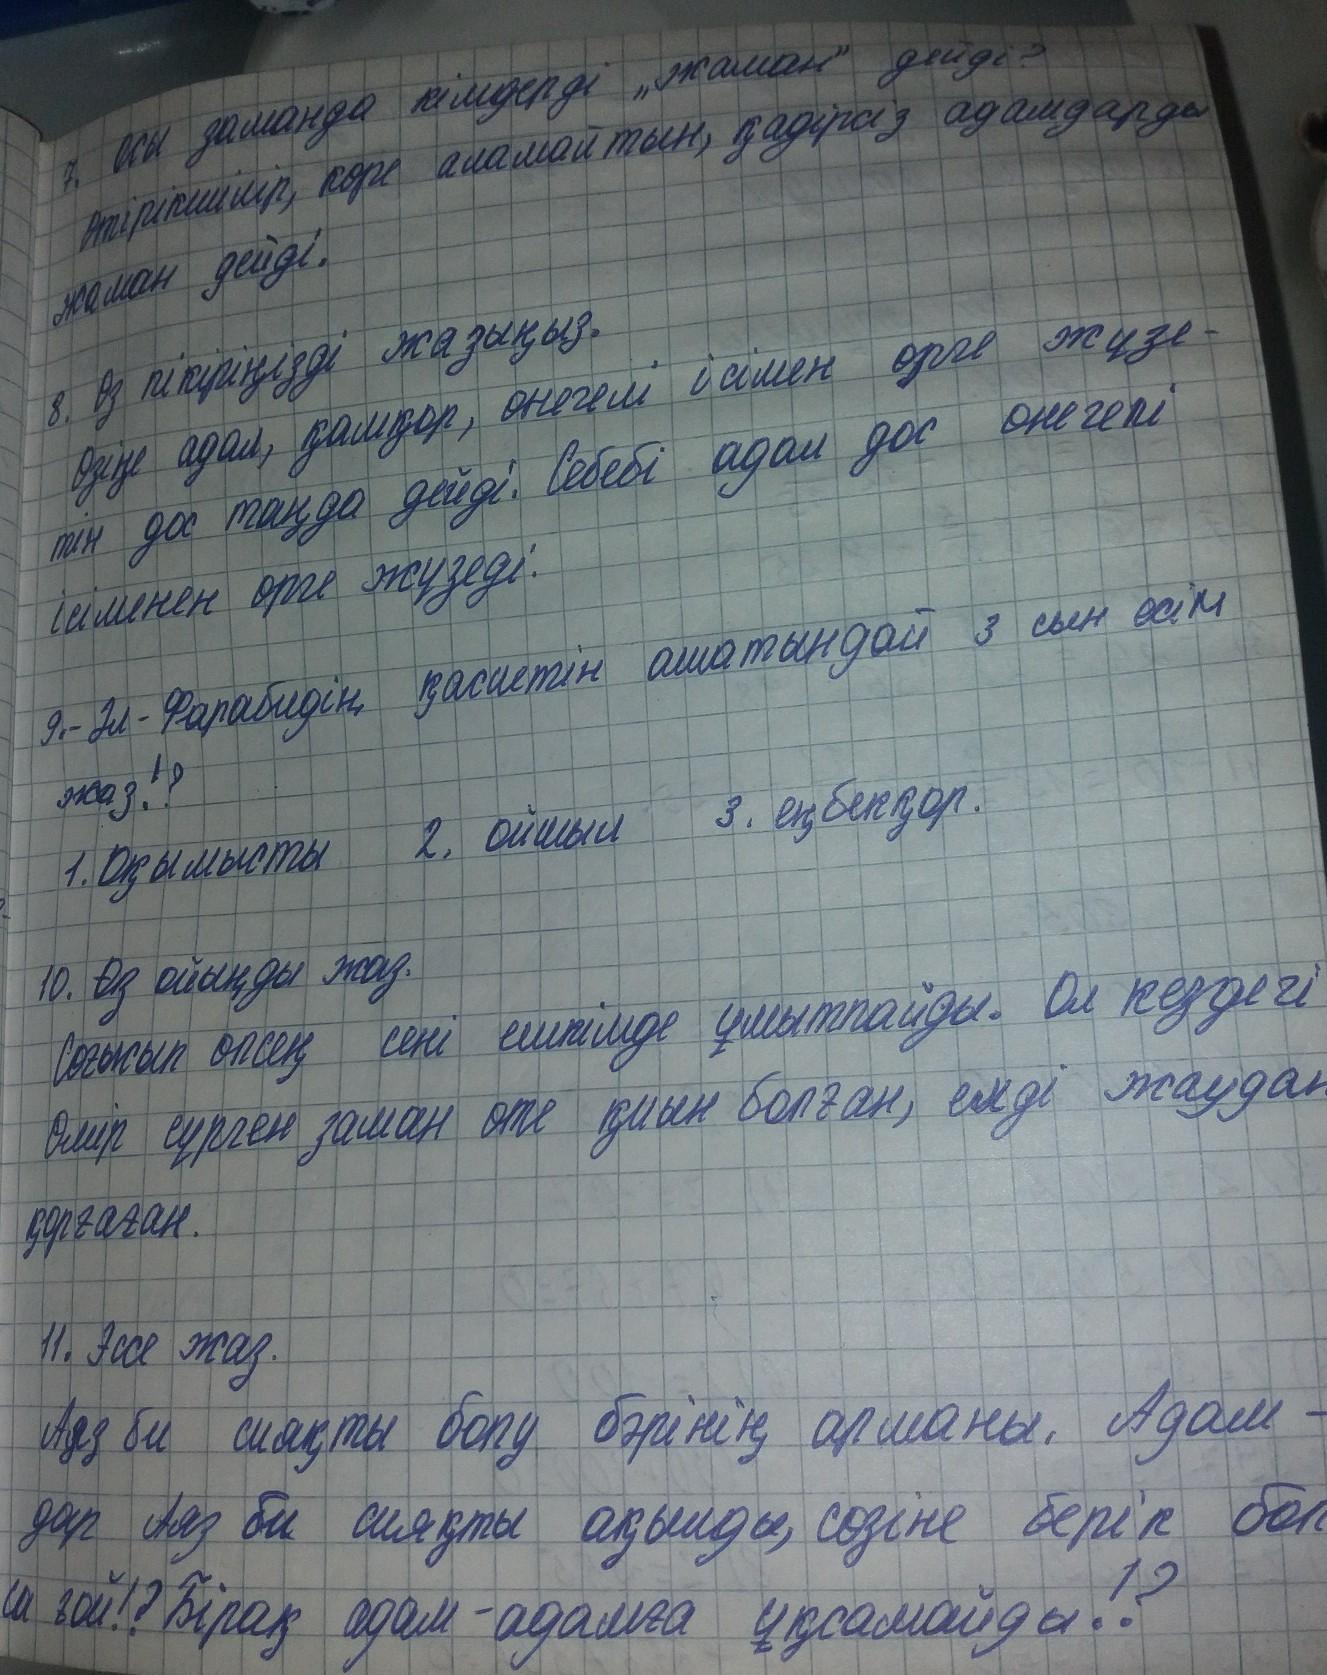 7. Осы заманда кімдерді „жаман" дейді?
Өтірікшілір, көре аламайтын, қадірсіз адамдарды
жаман дейді.
8. Өз пікіріңізді жазыңыз.
Өзіңе адал, қамқор, өнегелі ісімен өрге жүзе-
тін дос таңда дейді. Себебі адал дос өнегелі
ісіменен өрге жүзеді.
9.-Әл-Фарабидің қасиетін ашатындай 3 сын есім
жаз!?
1. Оқымысты 2. ойшыл 3. еңбекқор.
10. Өз ойыңды жаз.
Соғысып өлсең сені ешкімде ұмытпайды. Ол кездегі
Өмір сүрген заман өте қиын болған, елді жаудан
қорғаған.
11. Эссе жаз.
Аяз би сияқты болу бәрінің арманы. Адам-
дар Аяз би сияқты ақылды, сөзіне берік бол
са ғой!? Бірақ адам-адамға ұқсамайды!?